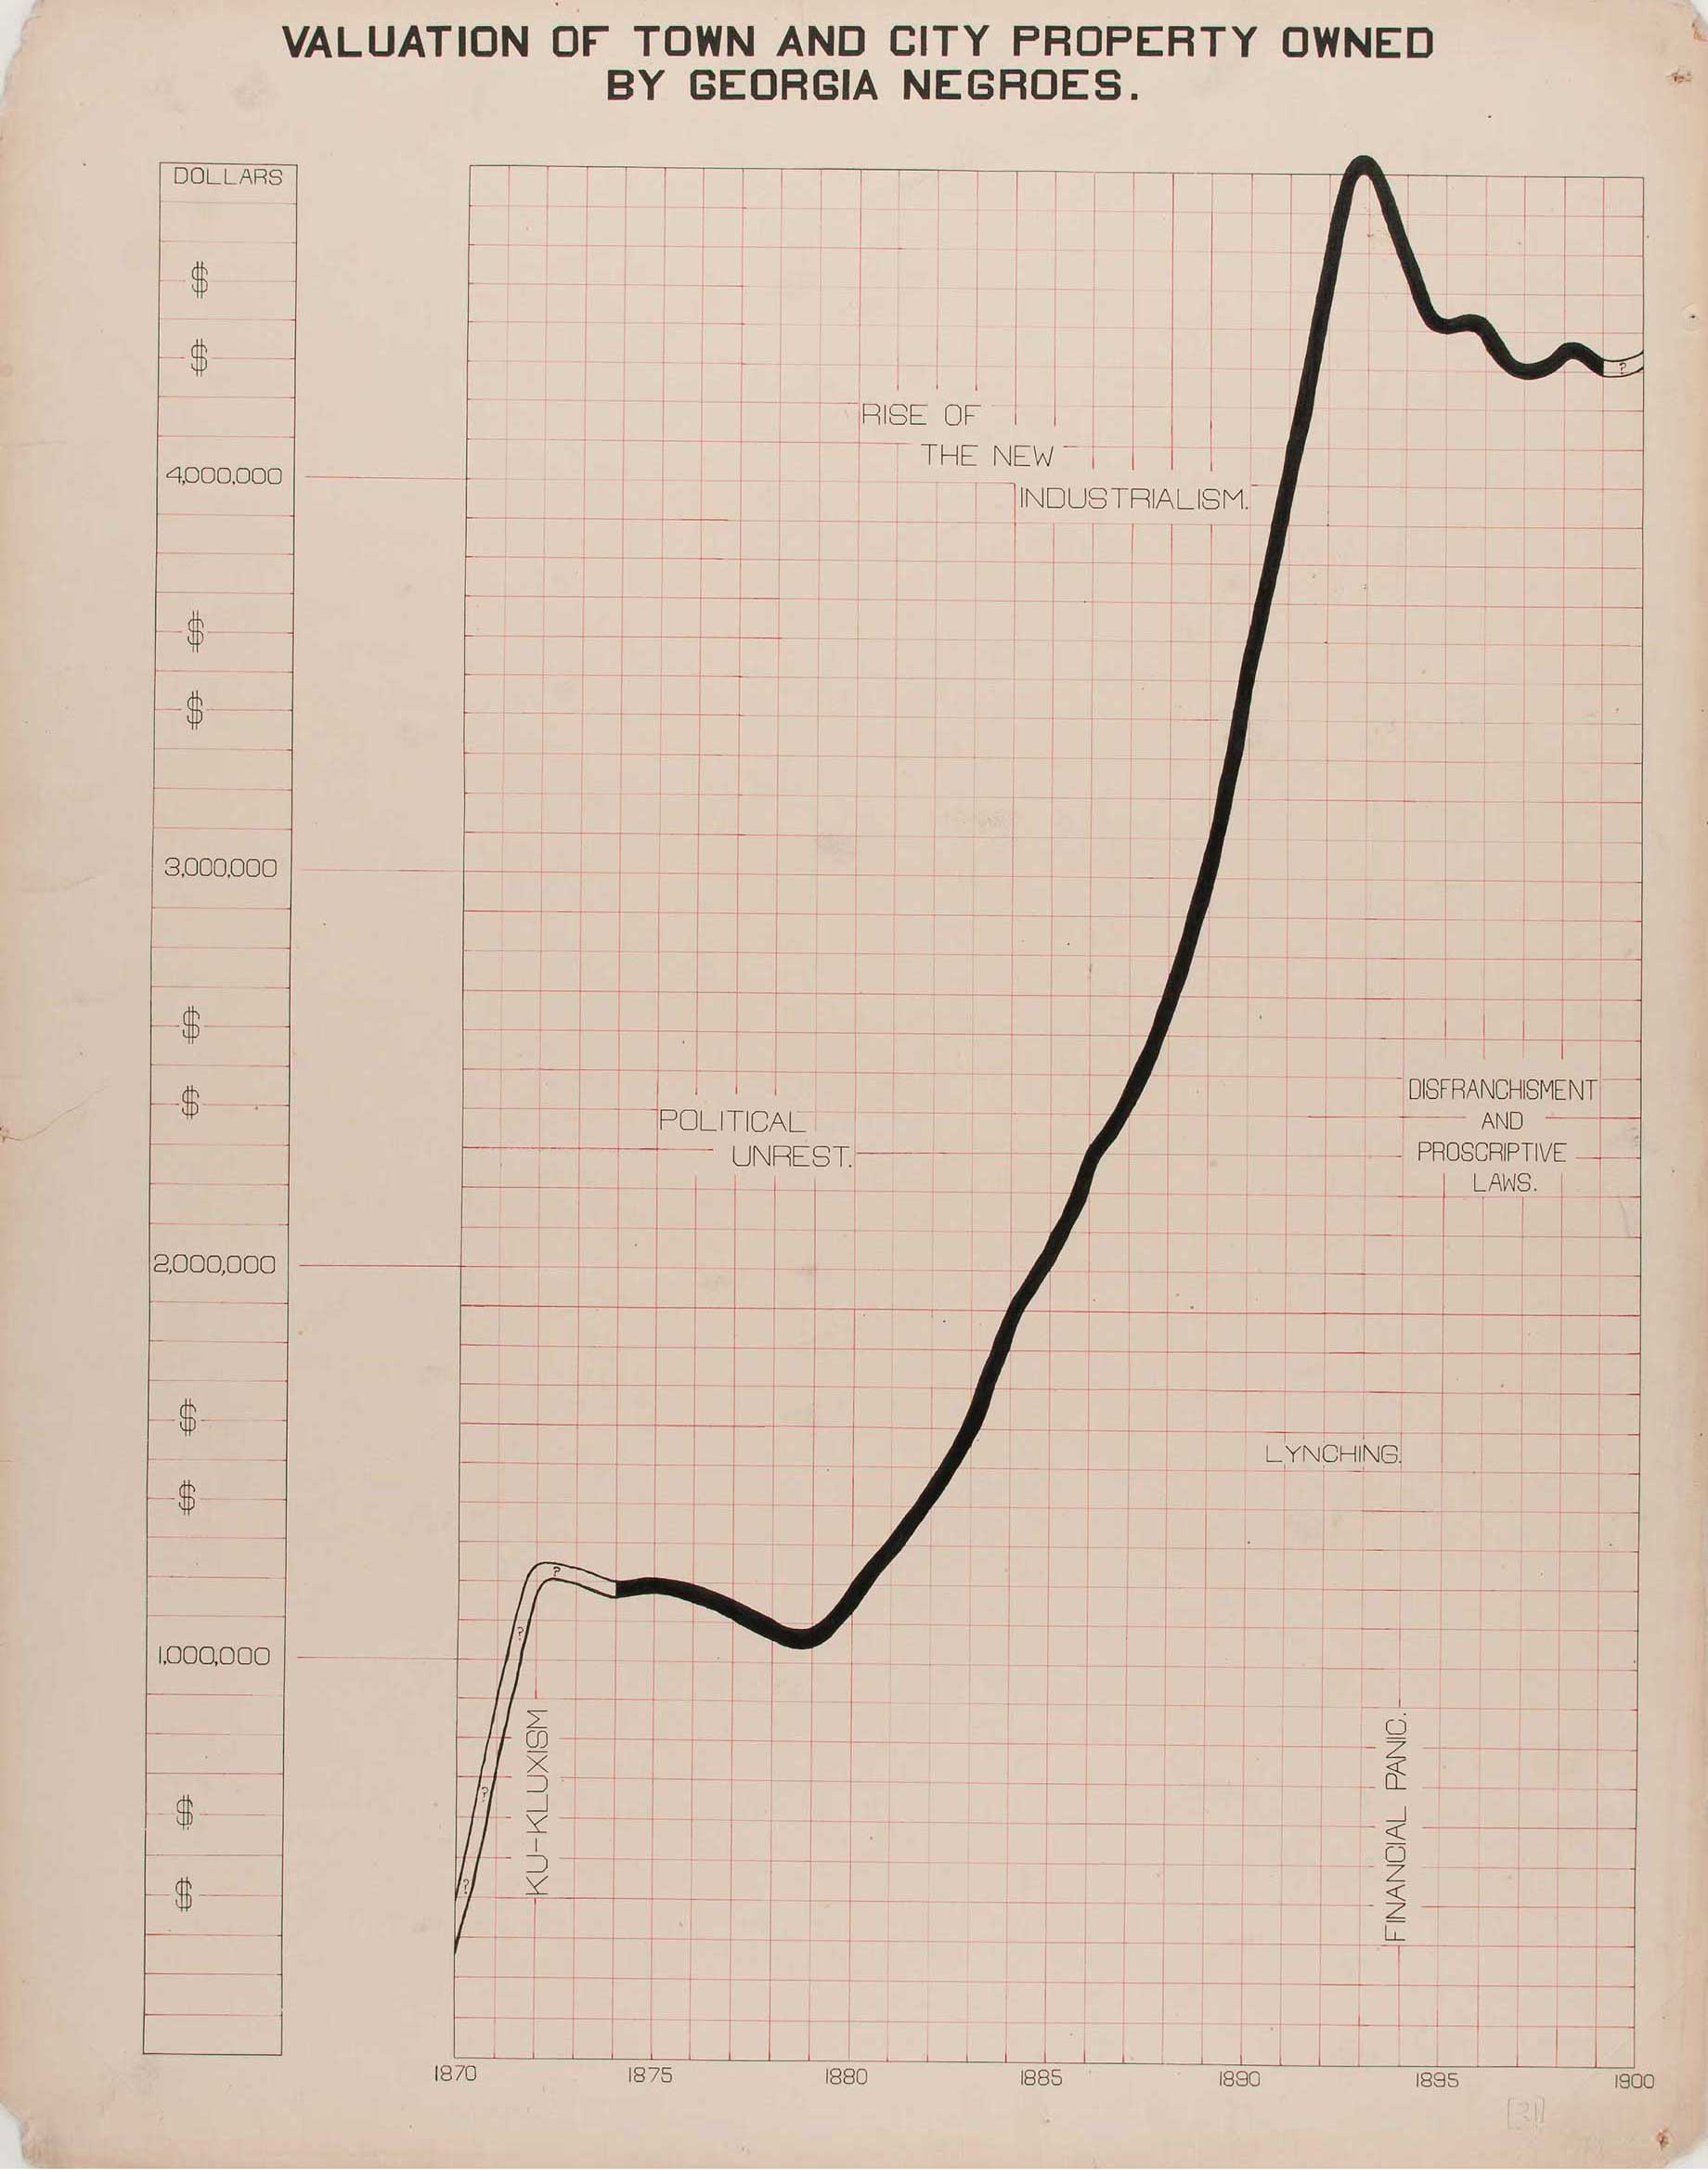 VALUATION OF TOWN AND CITY PROPERTY OWNED
BY GEORGIA NEGROES.
DOLLARS
$
$
4,000,000
$
$
3,000,000
$
$
2,000,000
$
$
1,000,000
$
$
RISE OF
THE NEW
INDUSTRIALISM.
POLITICAL
UNREST.
DISFRANCHISMENT
AND
PROSCRIPTIVE
LAWS.
LYNCHING.
KU-KLUXISM
FINANCIAL PANIC.
?
?
?
?
?
1870
1875
1880
1885
1890
1895
1900
[31]